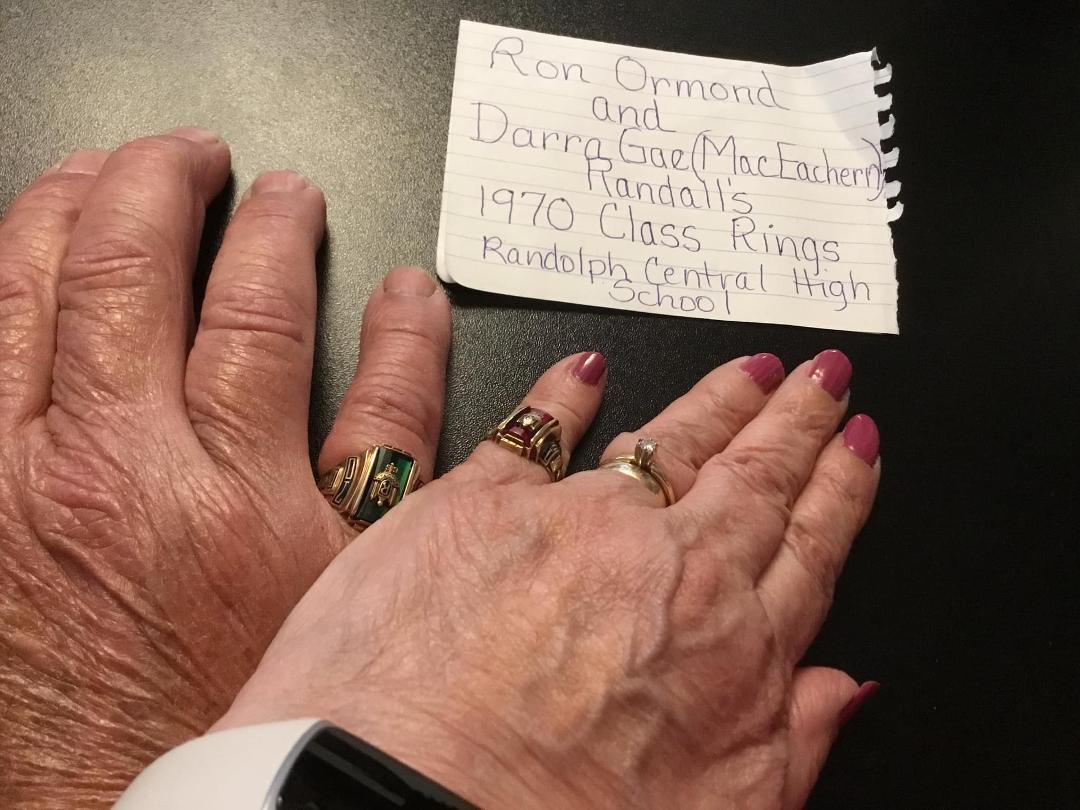 Ron Ormond
and
Darra Gae (MacEachern)
Randall's
1970 Class Rings
Randolph Central High
School